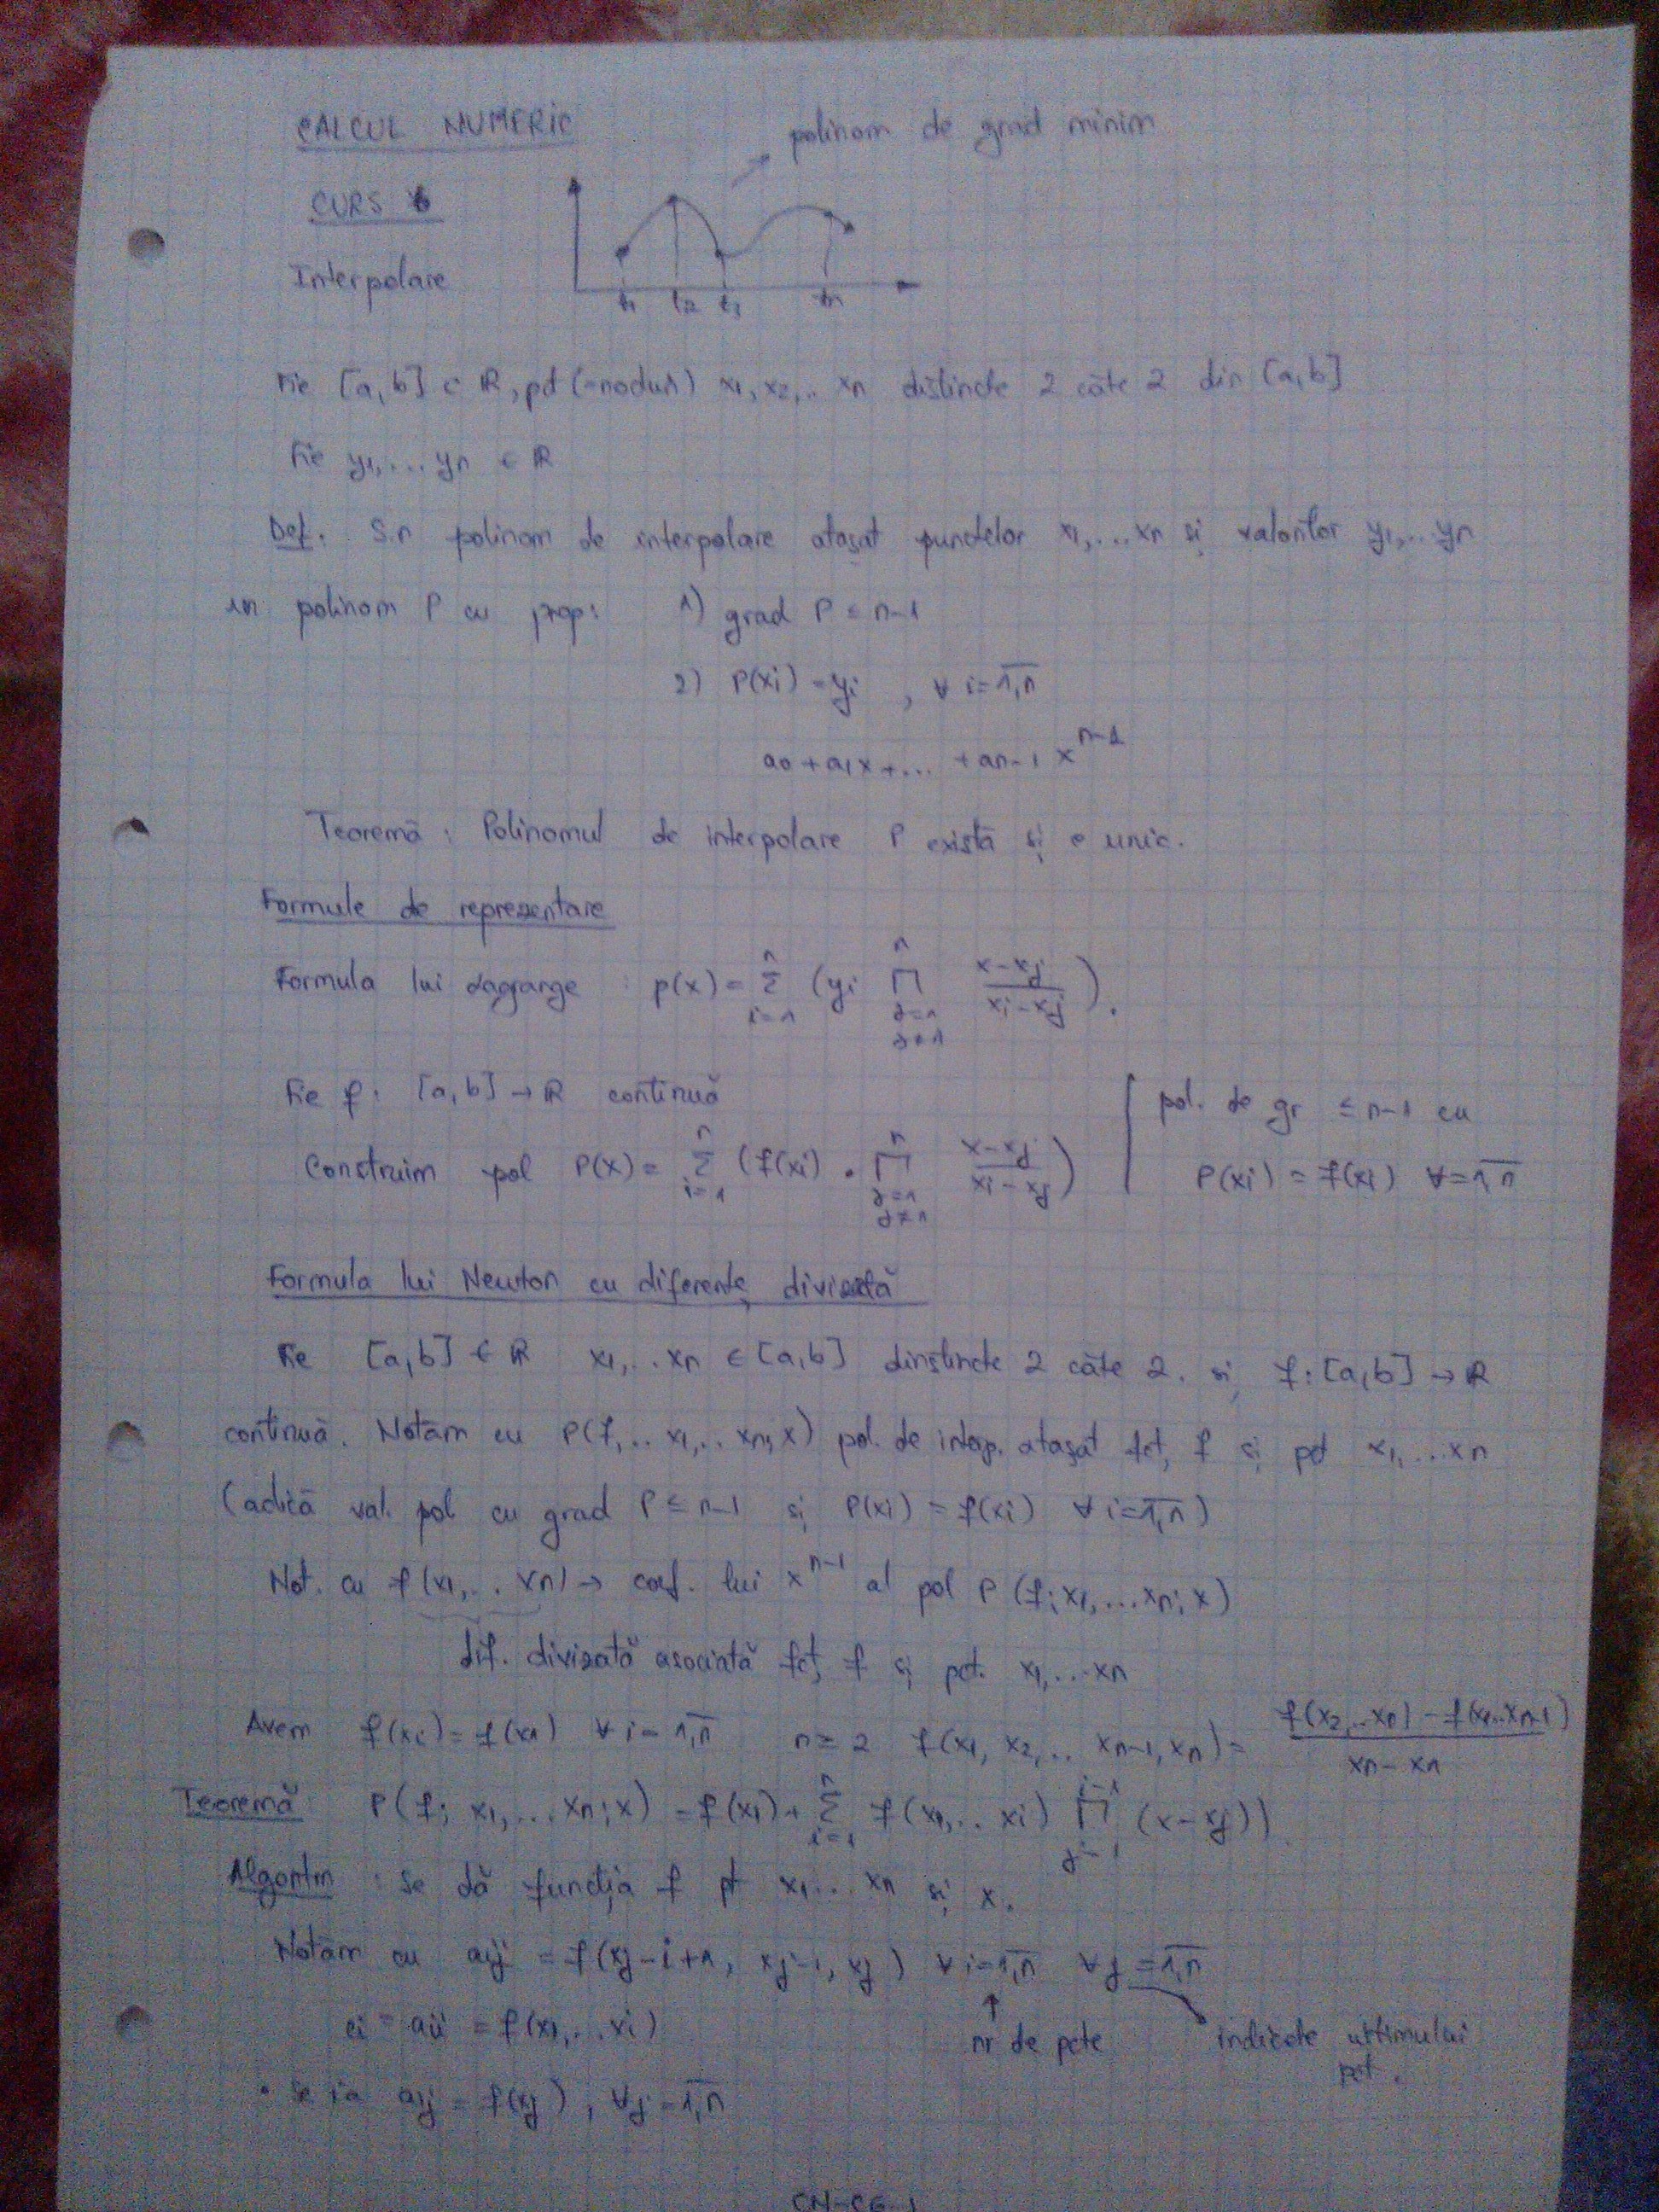 CALCUL NUMERIC
polinom de grad minim
CURS 6
Interpolare
t1 t2 t3 tn
Fie [a,b] ⊂ ℝ, pct (=noduri) x1, x2,.. xn distincte 2 câte 2 din [a,b]
Fie y1,... yn ∈ ℝ
Def. S.n polinom de interpolare atașat punctelor x1,...xn și valorilor y1,...yn
un polinom P cu prop: 1) grad P ≤ n-1
2) P(xi) = yi , ∀ i=1,n
a0 + a1x +... + an-1 x^n-1
Teoremă : Polinomul de interpolare P există și e unic.
Formule de reprezentare
Formula lui Lagrange : p(x) = Σ_{i=1}^n (yi Π_{j=1, j≠1}^n (x-xj)/(xi-xj)).
Fie f: [a,b] → ℝ continuă
Construim pol P(x) = Σ_{i=1}^n (f(xi) · Π_{j=1, j≠1}^n (x-xj)/(xi-xj))
pol. de gr ≤ n-1 cu
P(xi) = f(xi) ∀=1,n
Formula lui Newton cu diferențe divizată
Fie [a,b] ∈ ℝ x1,..xn ∈ [a,b] dinstincte 2 câte 2. și f: [a,b] → ℝ
continuă. Notăm cu P(f,.. x1,.. xn; x) pol. de interp. atașat fct, f și pct x1,...xn
(adică val. pol cu grad P ≤ n-1 și P(xi) = f(xi) ∀ i=1,n)
Not. cu f(x1,.. xn) → coef. lui x^n-1 al pol P (f; x1,...xn; x)
dif. divizată asociată fct, f și pct. x1,...xn
Avem f(xi) = f(x1) ∀ i=1,n n≥2 f(x1, x2,.. xn-1, xn) = (f(x2,..xn) - f(x1..xn-1))/(xn-xn)
Teoremă P(f; x1,...xn; x) = f(x1) + Σ_{i=1}^n f(x1,.. xi) Π_{j=1}^{i-1} (x-xj))
Algoritm : Se dă funcția f pt x1... xn și x.
Notăm cu aij = f(xj-i+1, xj-1, xj) ∀ i=1,n ∀j=1,n
ci = aii = f(x1,..xi)
nr de pcte
indicele ultimului
pct.
• Se ia a1j = f(xj), ∀j=1,n
CN-C6-1